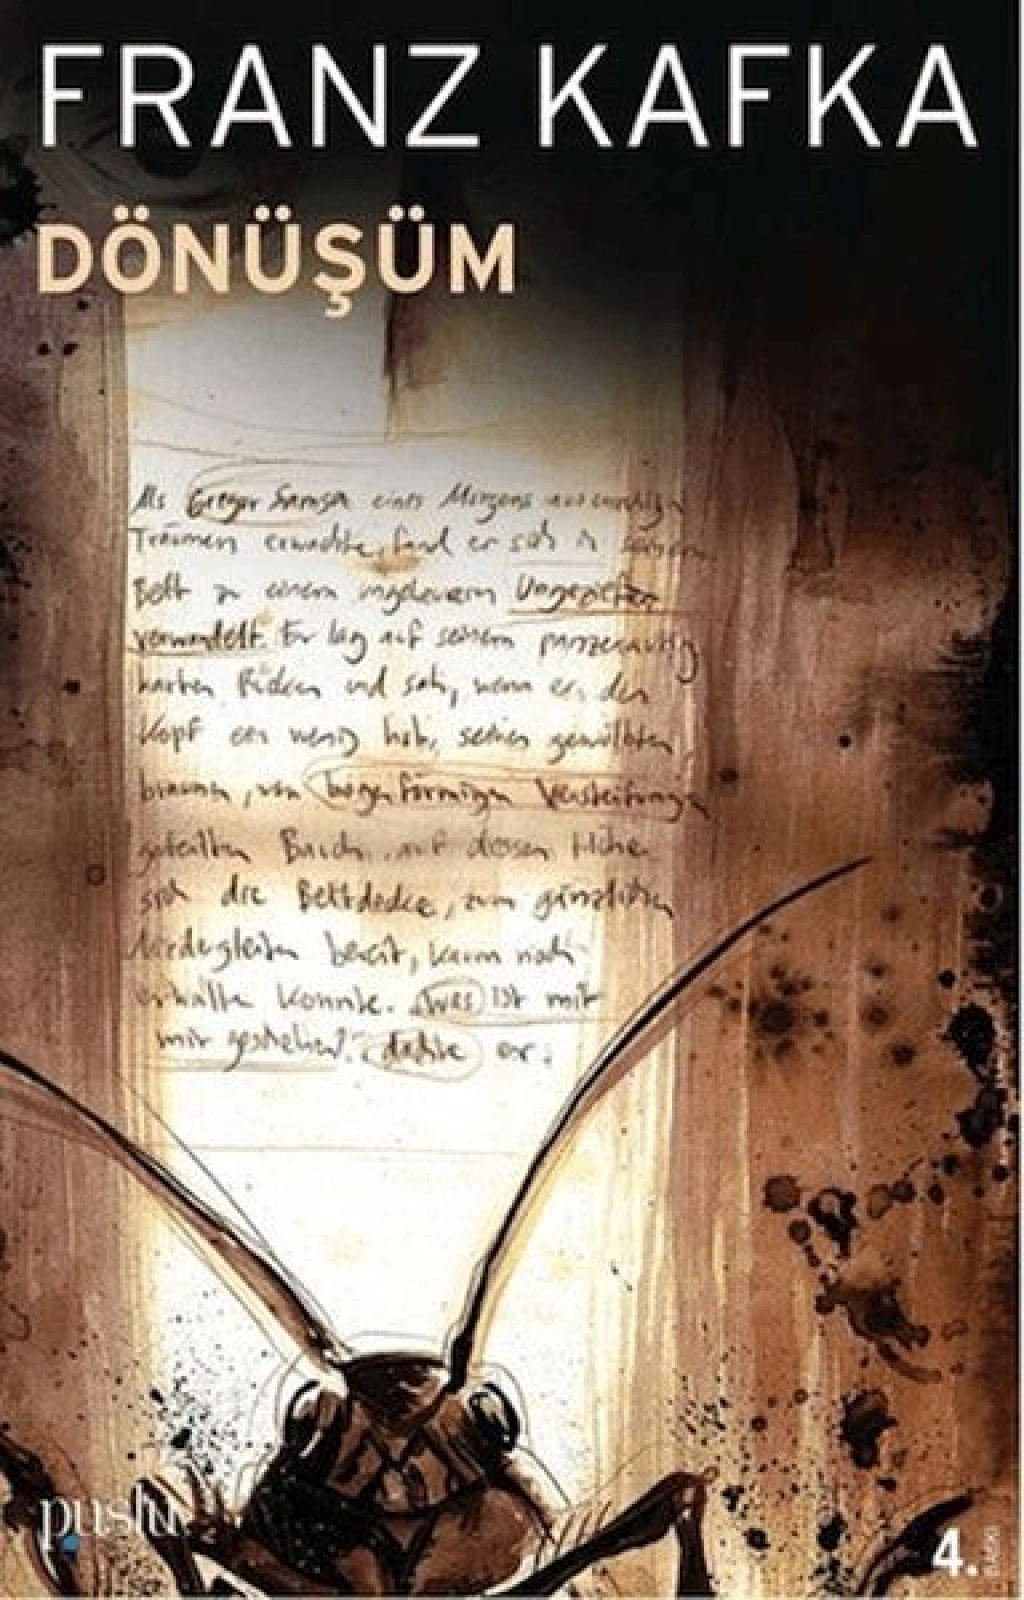 FRANZ KAFKA
DÖNÜŞÜM
Als Gregor Samsa eines Morgens aus unruhigen
Träumen erwachte, fand er sich in seinem
Bett zu einem ungeheueren Ungeziefer
verwandelt. Er lag auf seinem panzerartig
harten Rücken und sah, wenn er den
Kopf ein wenig hob, seinen gewölbten,
braunen, von bogenförmigen Versteifungen
geteilten Bauch, auf dessen Höhe
sich die Bettdecke, zum gänzlichen
Niedergleiten bereit, kaum noch
erhalten konnte. Was ist mit
mir geschehen? dachte er.
puslu
4.
BASKI